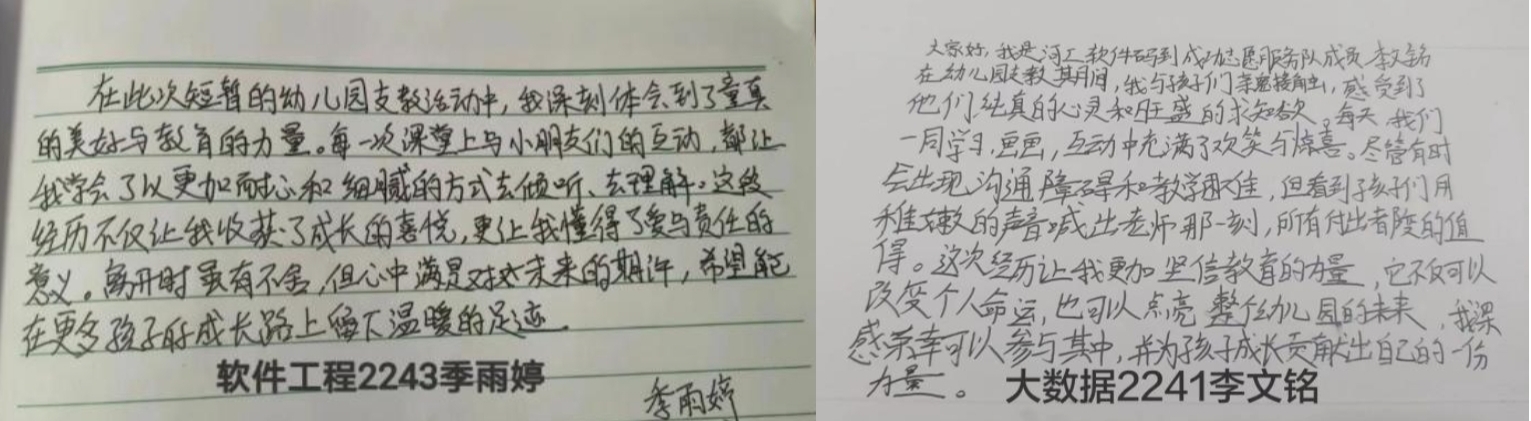 在此次短暂的幼儿园支教活动中，我深刻体会到了童真
的美好与教育的力量。每一次课堂上与小朋友们的互动，都让
我学会了以更加耐心和细腻的方式去倾听、去理解。这段
经历不仅让我收获了成长的喜悦，更让我懂得了爱与责任的
意义。离开时虽有不舍，但心中满是对未来的期许，希望能
在更多孩子的成长路上留下温暖的足迹.
软件工程2243季雨婷
季雨婷
大家好，我是河工软件码到成功志愿服务队成员李文铭
在幼儿园支教其间，我与孩子们亲密接触，感受到了
他们纯真的心灵和旺盛的求知欲。每天，我们
一同学习，画画，互动中充满了欢笑与惊喜。尽管有时
会出现沟通障碍和教学困难，但看到孩子们用
稚嫩的声音喊出老师那一刻，所有付出都变的值
得。这次经历让我更加坚信教育的力量，它不仅可以
改变个人命运，也可以点亮整个幼儿园的未来，我深
感荣幸可以参与其中，并为孩子成长贡献出自己的一份
力量。
大数据2241李文铭